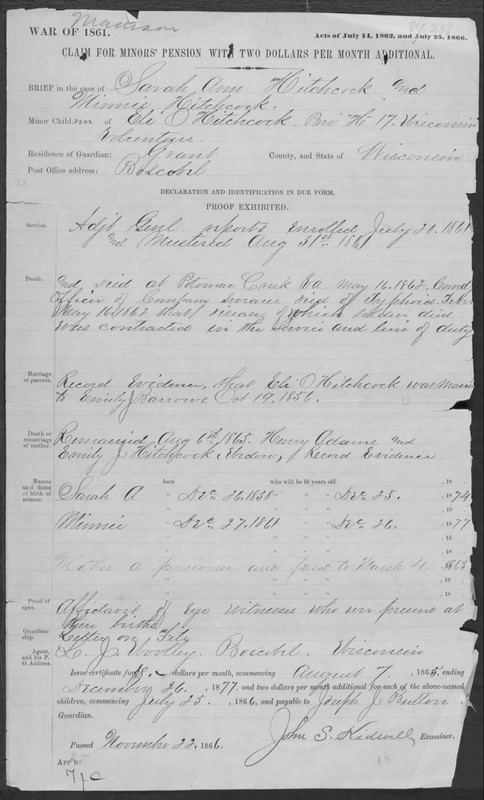 Madison
WAR OF 1861.
Acts of July 14, 1862, and July 25, 1866.
CLAIM FOR MINORS' PENSION WITH TWO DOLLARS PER MONTH ADDITIONAL.
BRIEF in the case of Sarah Ann Hitchcock and
Minnie Hitchcock.
Minor Children of Eli O Hitchcock Priv H 17. Wisconsin
Volunteers.
Residence of Guardian: Grant County, and State of Wisconsin
Post Office address: Boscobel
DECLARATION AND IDENTIFICATION IN DUE FORM.
PROOF EXHIBITED.
Service. Adjt Genl reports enrolled July 20, 1861
and Mustered Aug 31st 1861
Death. And died at Potomac Creek Va. May 16, 1862. Comd
Officer of Company died of Typhoid Fever
May 16, 1862 that disease of which soldier died
was contracted in the service and line of duty
Marriage of parents. Record Evidence, that Eli O Hitchcock was
to Emily J Barrows Oct 19, 1856.
Death or remarriage of mother. Remarried, Aug 6th 1865. Henry Adams and
Emily J Hitchcock, Widow, Record Evidence
Names and dates of birth of minors. born who will be 16 years old
Sarah A " Dec 26, 1858 " " Dec 25. , 1874
Minnie " Dec 27, 1861 " " Dec 26. , 1877
Mother a pensioner and paid to March 4, 1865
Proof of ages. Affidavit of Eye witnesses who were present at
their births
Guardianship. Letters on File
Agent, and his P. O. Address. L. J. Woolley, Boscobel, Wisconsin
Issue certificate for 8. dollars per month, commencing August 7, 1865, ending
December 26, 1877, and two dollars per month additional for each of the above-named
children, commencing July 25, 1866, and payable to Joseph J Button
Guardian.
Passed November 22, 1866.
John S. Kidwell Examiner.
APP'D: